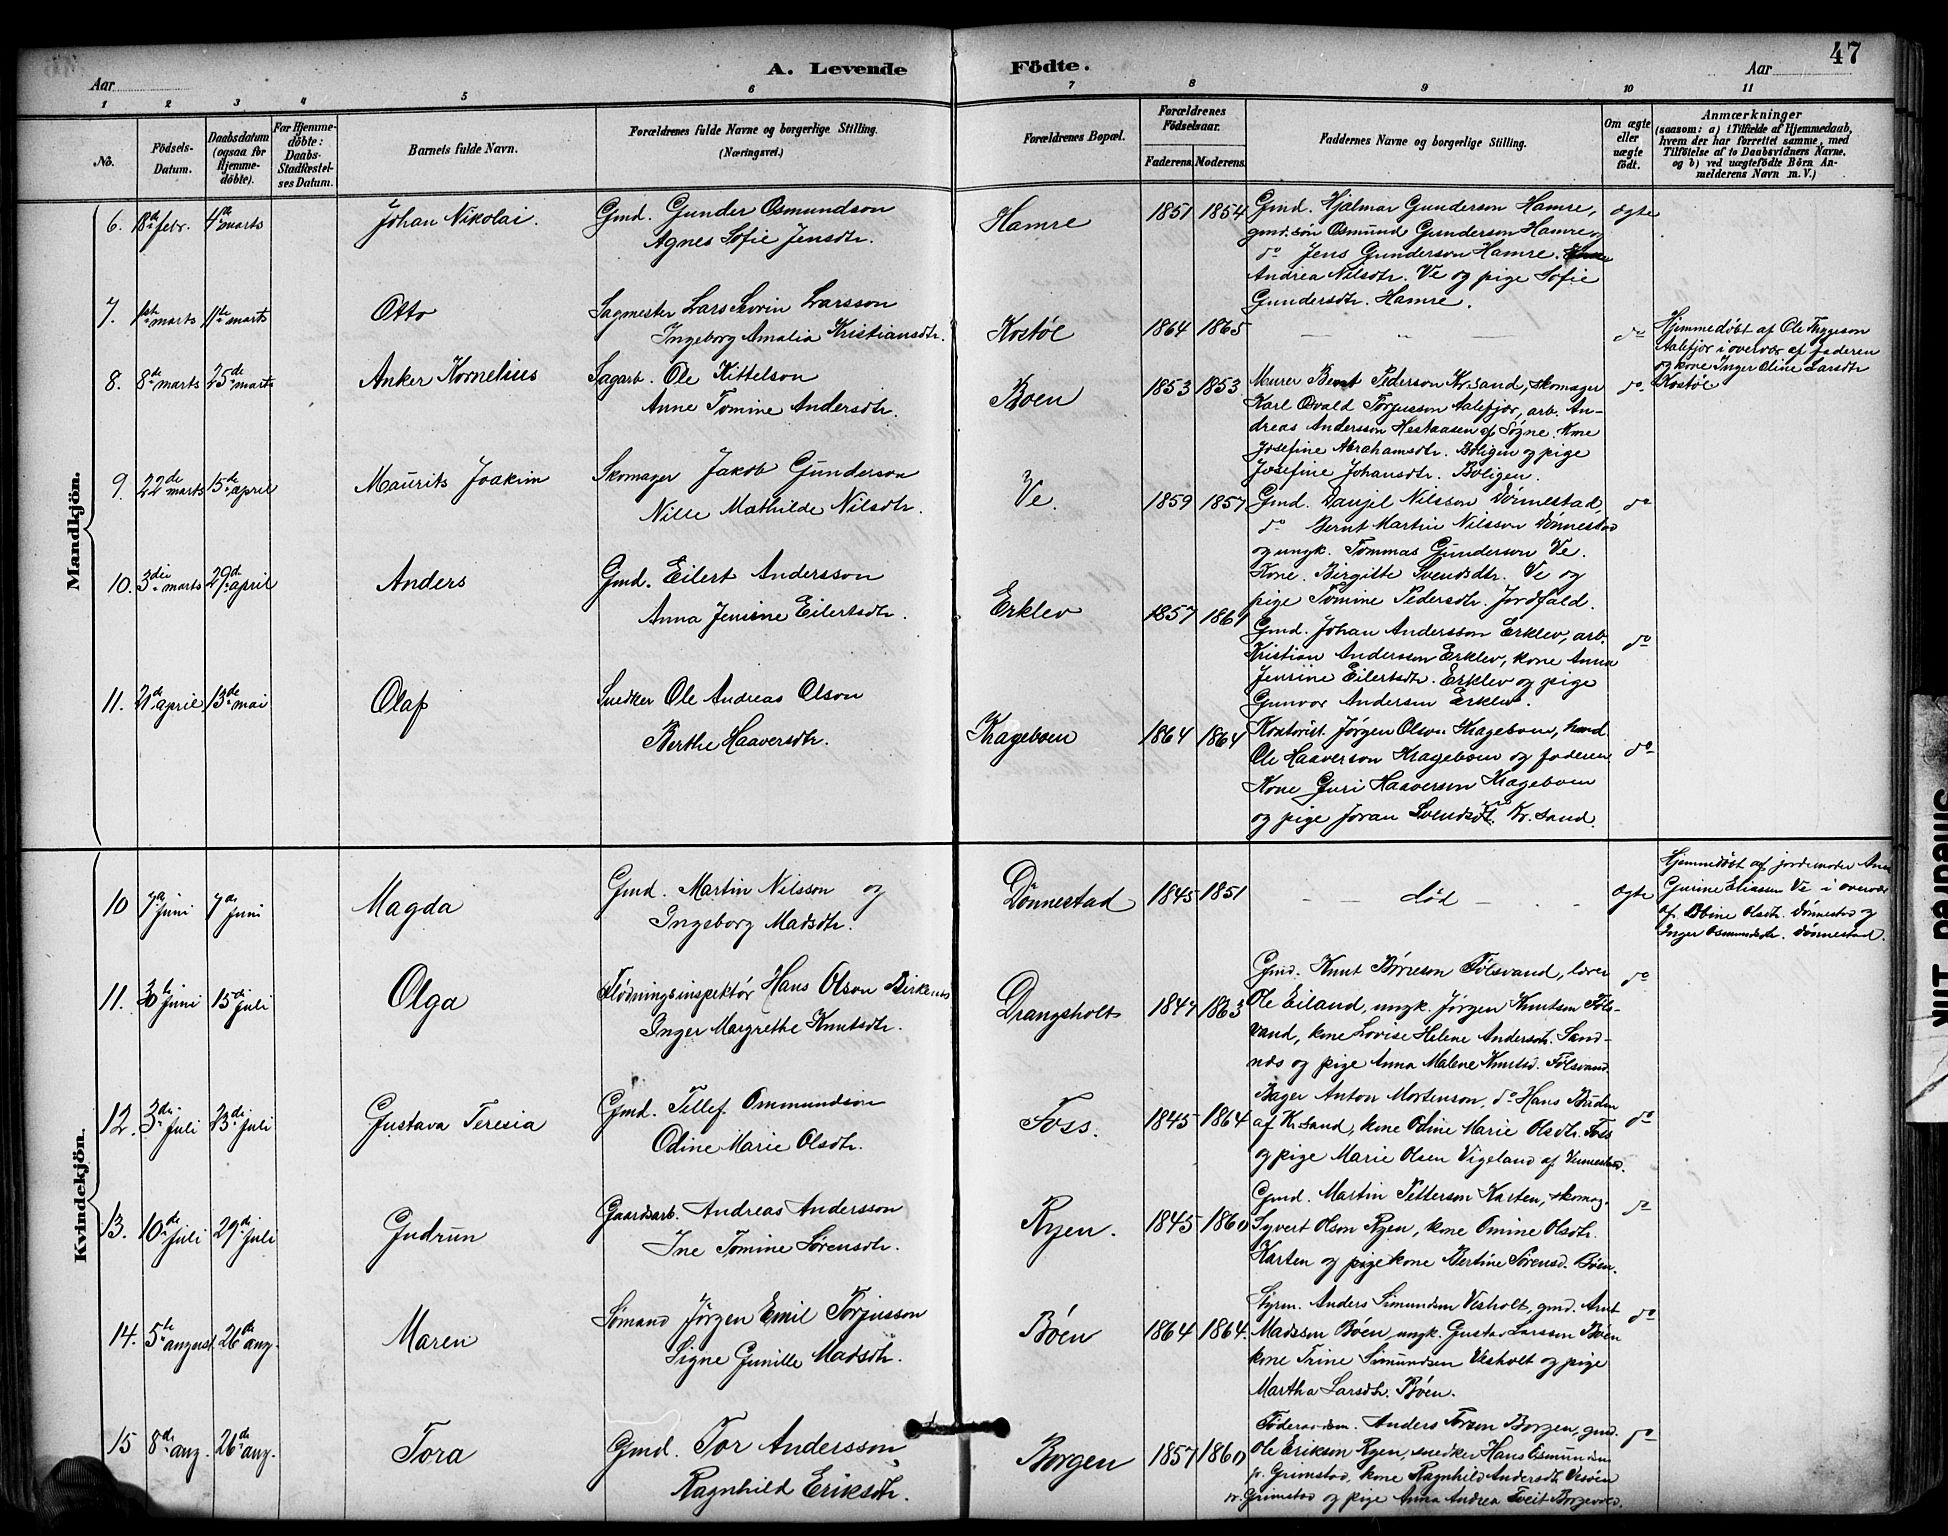 47
A. Levende Födte.
Aar
Aar
1 2 3 4 5 6 7 8 9 10 11
No.
Födsels-Datum.
Daabsdatum (ogsaa for Hjemme-döbte).
For Hjemme-döbte: Daabs-Stadfæstel-ses Datum.
Barnets fulde Navn.
Forældrenes fulde Navne og borgerlige Stilling. (Næringsvei.)
Forældrenes Bopæl.
Forældrenes Födselsaar.
Faderens. Moderens.
Faddernes Navne og borgerlige Stilling.
Om ægte eller uægte födt.
Anmærkninger
(saasom: a) i Tilfælde af Hjemmedaab,
hvem der har forrettet samme, med
Tilföielse af to Daabsvidners Navne,
og b) ved uægtefödte Börn An-
melderens Navn m. V.)
Mandkjön.
6. 18de febr. 4de marts Johan Nikolai. Gmd. Gunder Osmundson
Agnes Sofie Jensdtr.
Hamre 1851 1854
Gmd. Hjalmar Gunderson Hamre,
gmd. søn Osmund Gunderson Hamre og
do Jens Gunderson Hamre.
Andrea Nilsdtr. Ve og pige Sofie
Gundersdtr. Hamre.
ægte
7. 1ste marts 11te marts Otto Sagmester Lars Lorin Larsson
Ingeborg Amalia Kristiansdtr.
Kostøl 1864 1865 do
Hjemmedøbt af Ole Thygeson
Aalefjær i overvær af faderen
og kone Inger Oline Larsdtr
Kostøl
8. 8de marts 25de marts Anker Kornelius Sagarb. Ole Kittelson
Anne Tomine Andersdtr.
Boen 1853 1853
Murer Bernt Pederson Kr.sand, skomager
Karl Osvald Torjusson Aalefjær, arb. An-
dreas Andersson Hestaasen af Søgne. Kone
Josefine Abrahamsdtr. Boligen og pige
Josefine Johansdtr. Boligen.
do
9. 22de marts 15de april Maurits Joakim Skomager Jakob Gunderson
Nille Mathilde Nilsdtr.
Ve. 1859 1857
Gmd. Danjel Nilsson Dønnestad,
do Bernt Martin Nilsson Dønnestad
og ungk. Tommas Gunderson Ve.
Kone. Birgitte Svendsdtr. Ve og
pige Tomine Pedersdtr. Jordfald.
do
10. 3die marts 29de april Anders Gmd. Eilert Andersson
Anna Jensine Eilertsdtr.
Erklev 1857 1861
Gmd. Johan Andersson Erklev, arb.
Kristian Andersson Erklev, kone Anna
Jensine Eilertsdtr. Erklev og pige
Gunvor Andersen Erklev.
do
11. 21de april 13de mai Olaf Snedker Ole Andreas Olson
Berthe Haaversdtr.
Krageboen 1864 1864
Kontorist Jørgen Olson Krageboen,
Ole Haaverson Krageboen og faderen
Kone Guri Haaverson Krageboen
og pige Joran Svendsdtr. Kr.sand.
do
Kvindekjön.
10 7de juni 7de juni Magda Gmd. Martin Nilsson og
Ingeborg Madsdtr.
Dønnestad 1845 1851 død ægte
Hjemmedøbt af jordemoder Anne
Gurine Eliassen Ve i overvær
af Oline Olsdtr. Dønnestad og
Inger Osmundsdtr. Dønnestad.
11. 30te juni 15de juli Olga Flødningsinspektør Hans Olson Birkenes
Inger Margrethe Knutsdtr.
Drangsholt 1847 1863
Gmd. Knut Børreson Følsvand, lærer
Ole Eiland, ungk. Jørgen Knutsen Føls-
vand, kone Lovise Helene Andersdtr. Sand-
nes og pige Anna Malene Knutsd. Følsvand.
do
12. 3die juli 23de juli Gustava Teresia Gmd. Tellef Ommundson
Odine Marie Olsdtr.
Foss. 1845 1864
Bager Anton Mortenson, do Hans
af Kr.sand, kone Odine Marie Olsdtr. Foss
og pige Marie Olsen Vigeland af Vennesland.
do
13. 10de juli 29de juli Gudrun Gaardsarb. Andreas Andersson
Ine Tomine Sørensdtr.
Ryen. 1845 1860
Gmd. Martin Petterson Karten, skomag.
Syvert Olson Ryen, kone Omine Olsdtr.
Karten og pige kone Bertine Sørensd. Bøen.
do
14. 5te august. 26de aug. Maren Sømand Jørgen Emil Torjusson
Signe Gunille Madsdtr.
Bøen 1864 1864.
Styrm. Anders Simundsen Vesholt, gmd. Arnt
Madsson Bøen, ungk. Gustav Larsson Bøen
kone Trine Simundsen Vesholt og pige
Martha Larsdtr. Bøen.
do
15 8de aug. 26de aug. Tora Gmd. Tor Andersson,
Ragnhild Eriksdtr.
Borgen 1857 1860
Føderaadsm. Anders Torsen Borgen, gmd.
Ole Erikson Ryen, snedker Hans Osmundsen
pr. Grimstad, kone Ragnhild Andersdt.
pr. Grimstad og pige Anna Andrea Tveit
do